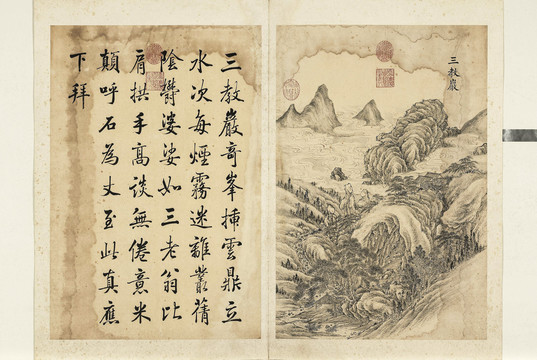 三教巖
三教巖奇峯揷雲鼎立
水次每煙霧迷離叢蒨
陰欝婆娑如三老翁比
肩拱手髙談無倦意米
顛呼石為丈至此真應
下拜